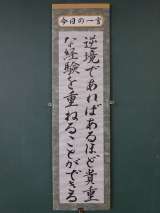 今日の一言
逆境であればあるほど貴重
な経験を重ねることができる